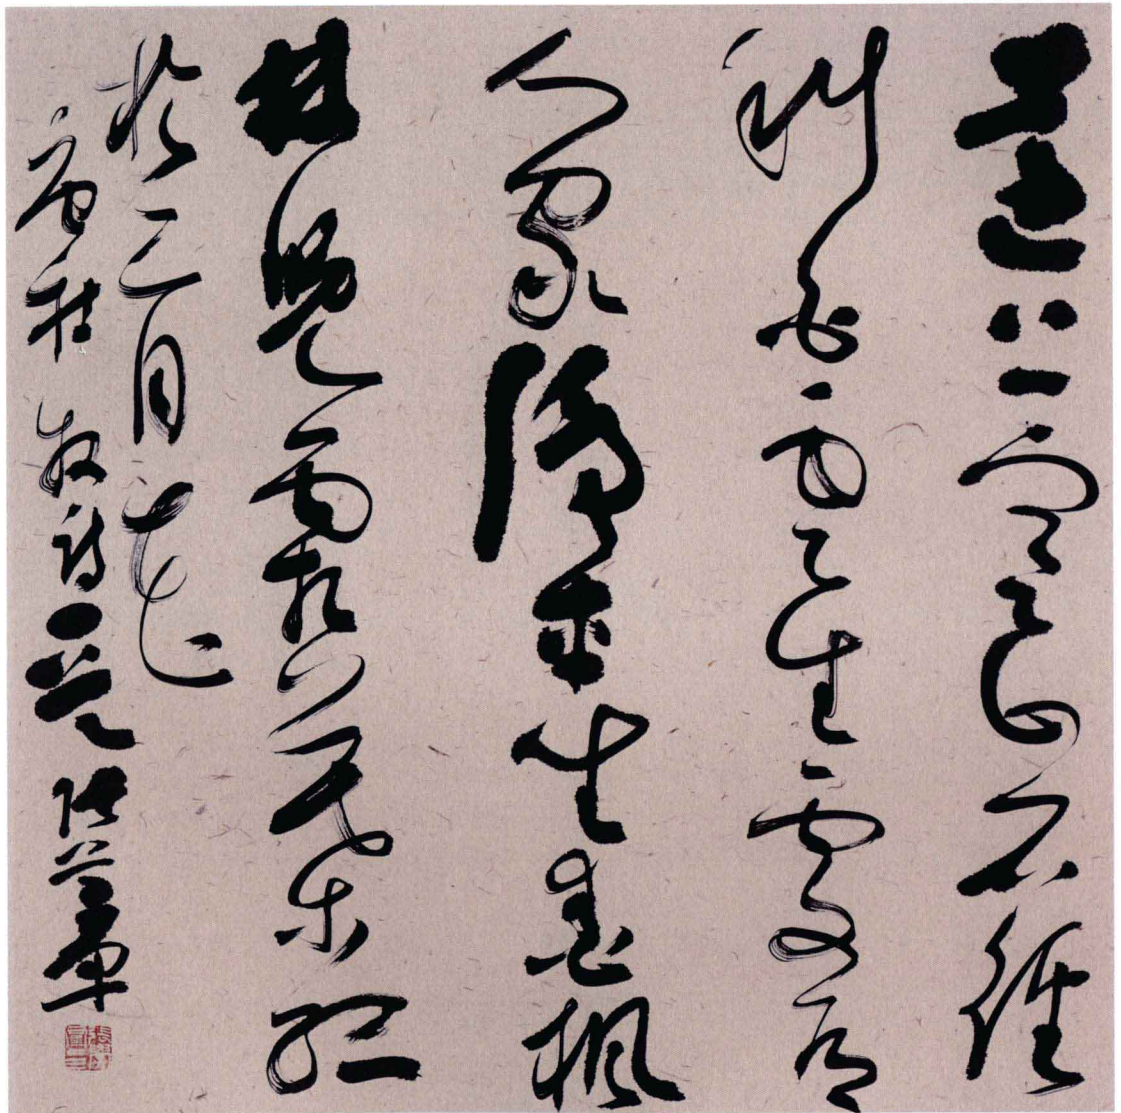 遠上寒山石徑
斜白雲生處有
人家停車坐愛楓
林晚霜葉紅
於二月花
唐杜牧詩 張